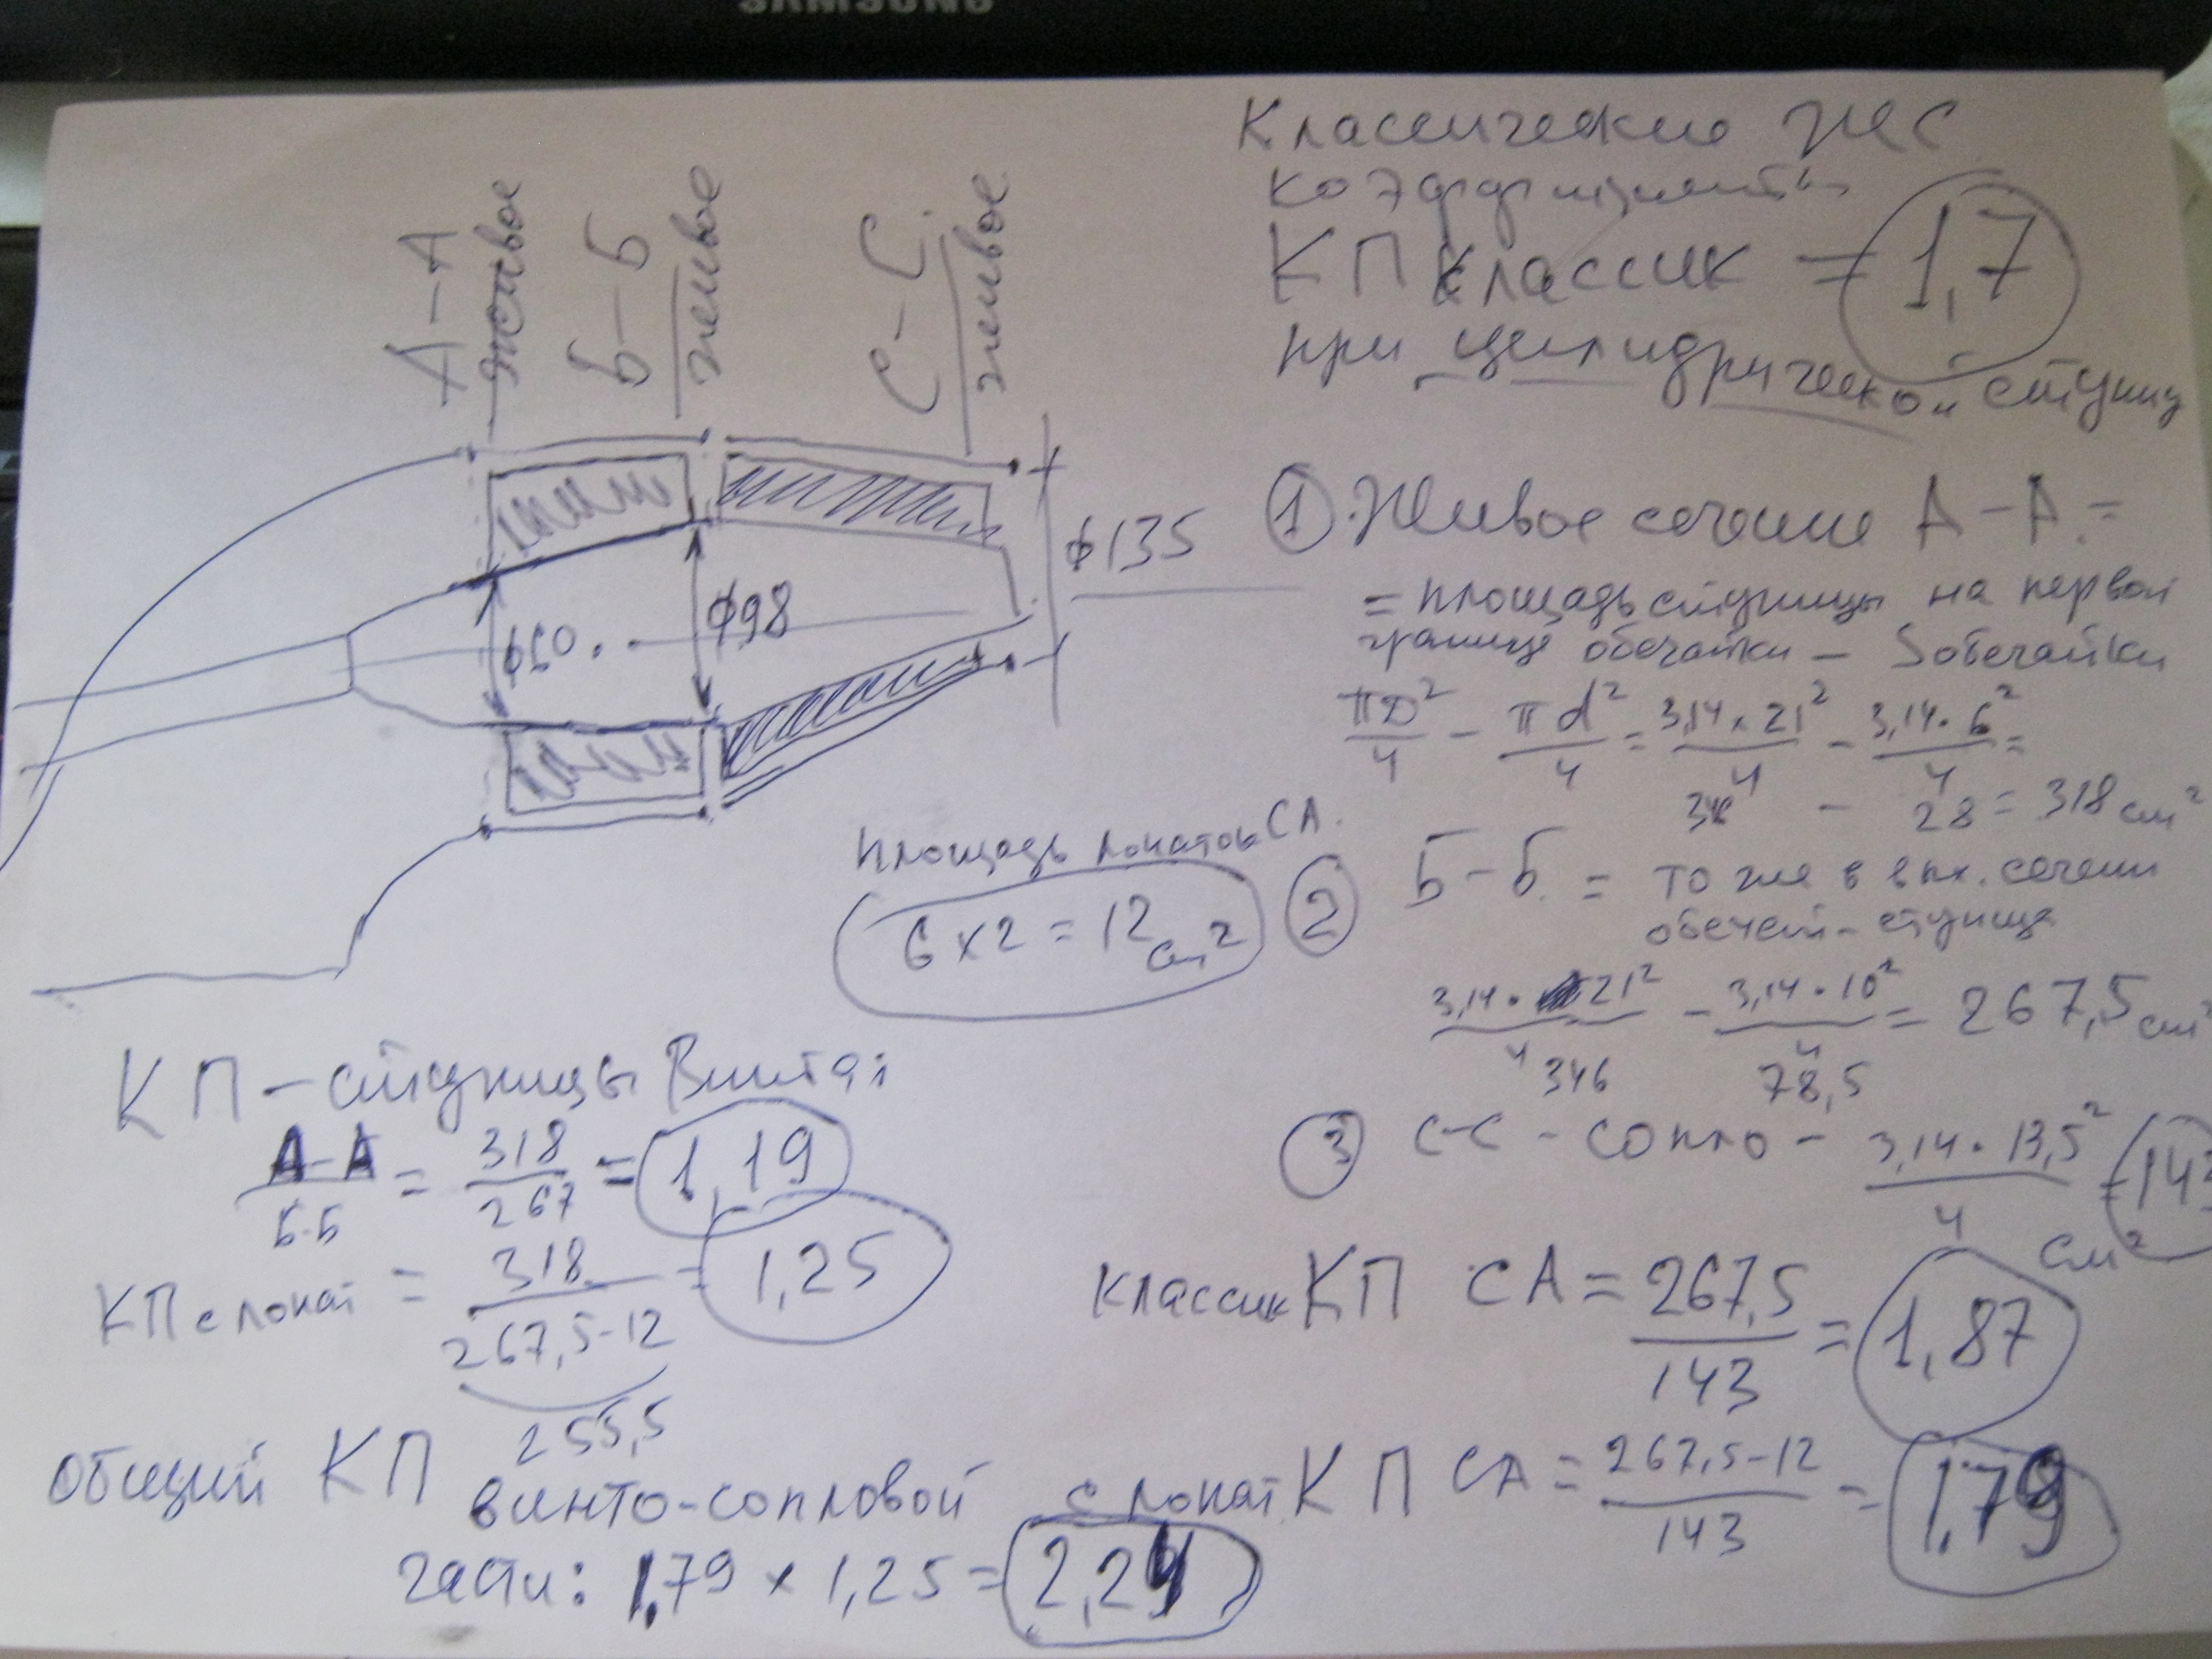 SAMSUNG
Классические
коэффициенты
КП классик = 1,7
при цилидрической ступиц
А-А
живое
Б-Б
живое
С-С
живое
ф60
ф98
ф135
① Живое сечение А-А =
= площадь ступицы на первой
границе обечайки - Sобечайки
πD²/4 - πd²/4 = 3,14 × 21²/4 - 3,14 · 6²/4 =
346 - 28 = 318 см²
Площадь лопаток СА.
6 × 2 = 12 см²
② Б-Б = то же в вых. сечении
обечай - ступица
3,14 · 21²/4 - 3,14 · 10²/4 = 267,5 см²
346 78,5
③ С-С - сопло - 3,14 · 13,5²/4 = 143
см²
КП - ступицы винта:
А-А/Б-Б = 318/267 = 1,19
КП с лопат = 318/267,5-12 = 1,25
255,5
Классик КП СА = 267,5/143 = 1,87
с лопат КП СА = 267,5-12/143 = 1,79
Общий КП
винто-сопловой
части: 1,79 × 1,25 = 2,24